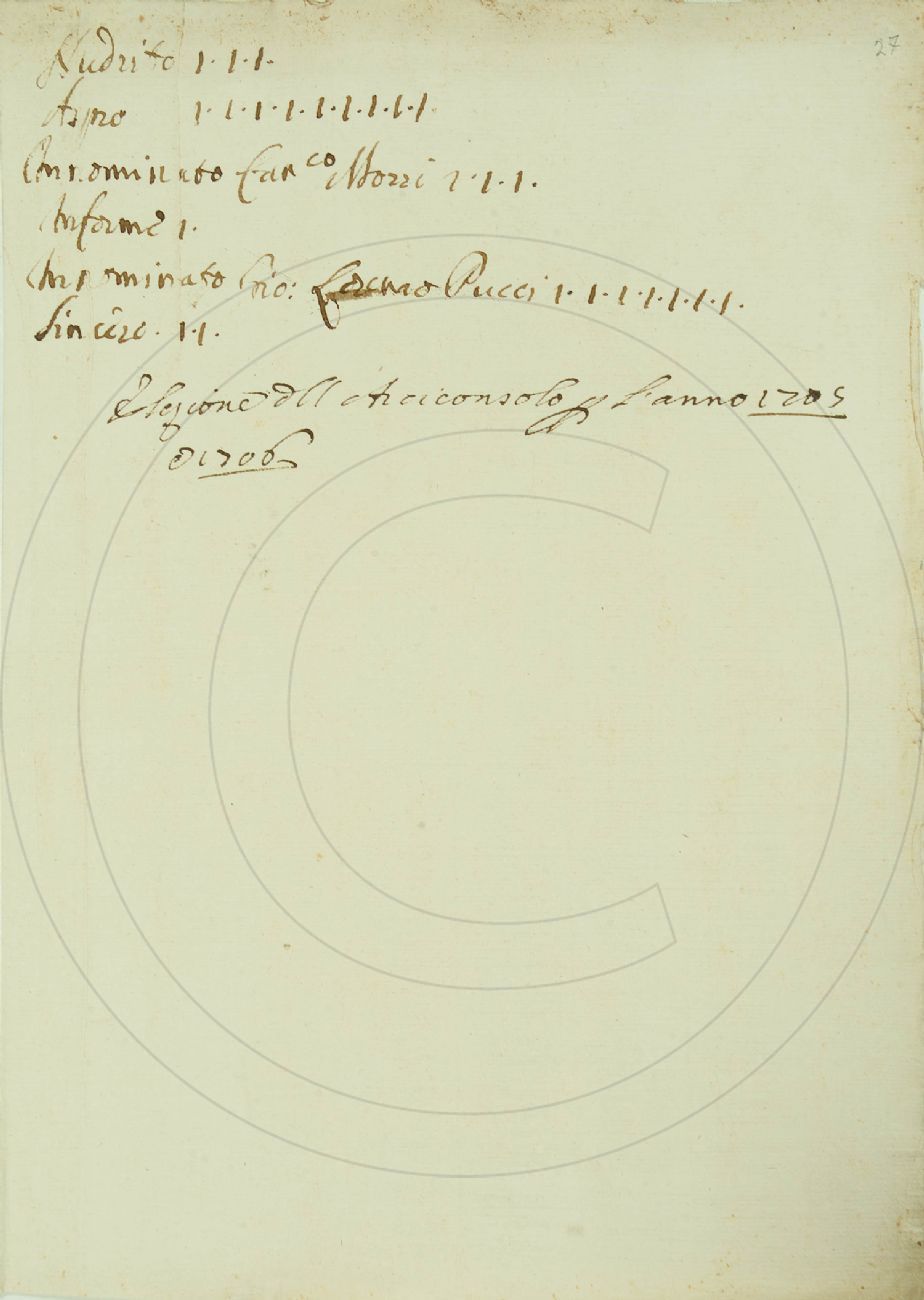 27
Nudrito 1·1·1·
Aspro 1·1·1·1·1·1·1·1·1·
Innominato Can.co Morri 1·1·1·
Informe 1·
Innominato Gio: Lorenzo Pucci 1·1·1·1·1·1·1·
Sincero· 1·1·
Elezione dell Arciconsolo p L'anno 1705
e 1706